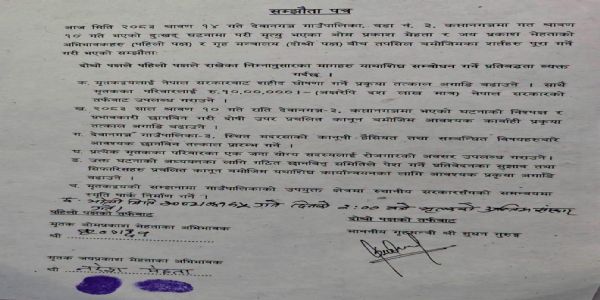 सम्झौता पत्र
आज मिति २०८३ श्रावण १४ गते देवानगञ्ज गाउँपालिका, वडा नं. ३, कप्तानगञ्जमा गत श्रावण
१० गते भएको दुःखद घटनामा परी मृत्यु भएका ओम प्रकाश मेहता र जय प्रकाश मेहताको
अभिभावकहरु (पहिलो पक्ष) र गृह मन्त्रालय (दोश्रो पक्ष) बीच तपसिल बमोजिमका शर्तहरु पुरा गर्ने गरी
सम्झौता।
दोश्रो पक्षले पहिलो पक्षले राखेका निम्नानुसारका मागहरु यथाशिघ्र सम्बोधन गर्ने प्रतिबद्धता व्यक्त
गर्दछ ।
क. मृतकद्वयलाई नेपाल सरकारबाट शहीद घोषणा गर्ने प्रकृया तत्काल अगाडी बढाउने । साथै
मृतकका परिवारलाई रु.१०,००,०००।- (अक्षरेपि दश लाख मात्र) नेपाल सरकारको
तर्फबाट उपलब्ध गराउने ।
ख. २०८३ साल श्रावण १० गते राति देवानगञ्ज-३, कप्तानगञ्जमा भएको घटनाको निश्पक्ष र
प्रभावकारी छानबिन गरी दोषी उपर प्रचलित कानुन बमोजिम आवश्यक कार्बाही प्रकृया
तत्काल अगाडी बढाउने ।
ग. देवानगञ्ज गाउँपालिका-३, स्थित मदरसाको कानूनी हैसियत तथा सम्बन्धित विषयहरुबारे
आवश्यक छानबिन तत्काल प्रारम्भ गर्ने ।
घ. प्रत्येक मृतकका परिवारका एक जना योग्य सदस्यलाई रोजगारको अवसर उपलब्ध गराउने ।
ङ. उक्त घटनाको अध्ययनका लागि गठित छानबिन समितिले पेश गर्ने प्रतिवेदनका सुझाव तथा
सिफारिसहरु प्रचलित कानुन बमोजिम यथाशिघ्र कार्यान्वयनका लागि आवश्यक प्रकृया अगाडी
बढाउने ।
च. मृतकद्वयको सम्झनामा गाउँपालिकाको उपयुक्त क्षेत्रमा स्थानीय सरकारसँगको समन्वयमा
स्मृति पार्क निर्माण गर्ने ।
मिति गते दिनको २:०० बजे अन्तिम संस्कार
गर्ने ।
पहिलो पक्षको तर्फबाट
दोश्रो पक्षको तर्फबाट
मृतक ओमप्रकाश मेहताका अभिभावक
माननीय गृहमन्त्री श्री सुधन गुरुङ
श्री
मृतक जयप्रकाश मेहताका अभिभावक
श्री नरेश मेहता